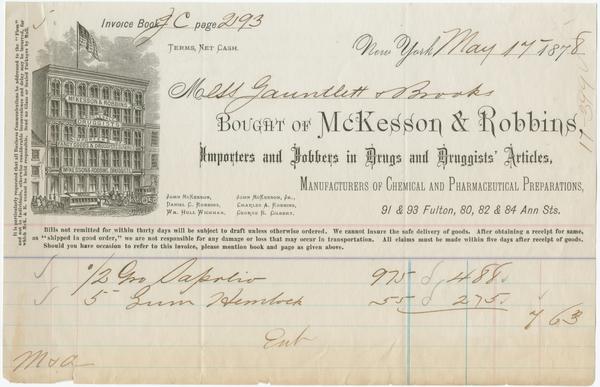 Invoice Book J C page 293
TERMS, NET CASH.
New York May 17 1878
Mess Gauntlett & Brooks
BOUGHT OF McKesson & Robbins,
Importers and Jobbers in Drugs and Druggists' Articles,
MANUFACTURERS OF CHEMICAL AND PHARMACEUTICAL PREPARATIONS,
91 & 93 Fulton, 80, 82 & 84 Ann Sts.
JOHN MCKESSON, JOHN MCKESSON, JR.,
DANIEL C. ROBBINS, CHARLES A. ROBBINS,
WM. HULL WICKHAM, GEORGE B. GILBERT.
McKESSON & ROBBINS
DRUGGISTS
McKESSON & ROBBINS, DRUGGISTS
It is particularly requested that all Business Communications be addressed to the "Firm"
Bills not remitted for within thirty days will be subject to draft unless otherwise ordered. We cannot insure the safe delivery of goods. After obtaining a receipt for same,
as "shipped in good order," we are not responsible for any damage or loss that may occur in transportation. All claims must be made within five days after receipt of goods.
Should you have occasion to refer to this invoice, please mention book and page as given above.
1/2 Gro Sapolio 975 488
5 Gum Hemlock 55 275
7 63
Ent